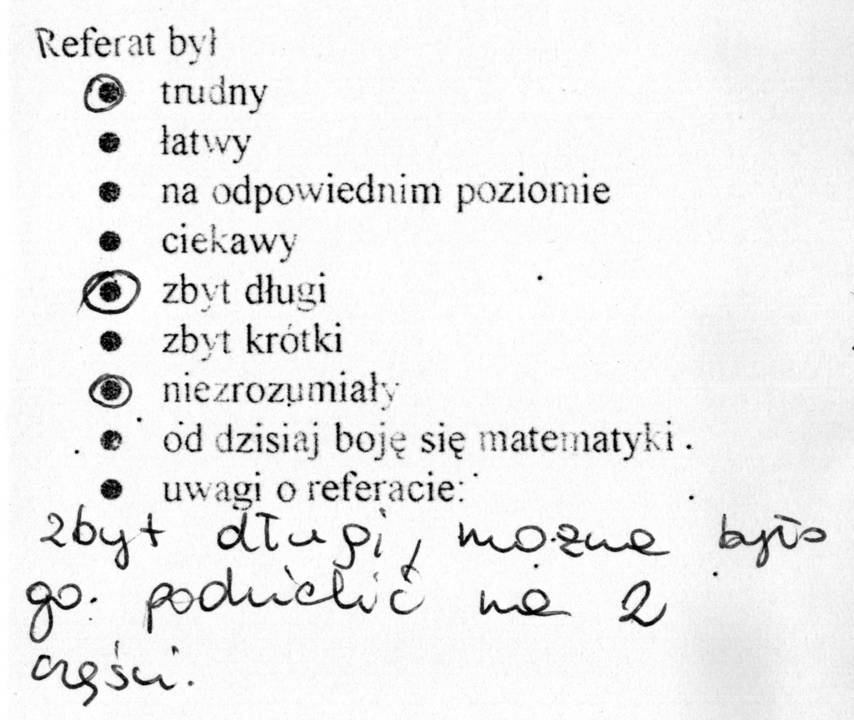 Referat był
• trudny
• łatwy
• na odpowiednim poziomie
• ciekawy
• zbyt długi
• zbyt krótki
• niezrozumiały
• od dzisiaj boję się matematyki.
• uwagi o referacie:
zbyt długi, można było
go podzielić na 2
części.